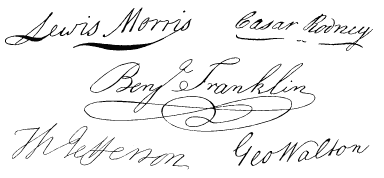 Lewis Morris
Caesar Rodney
Benjᵃ Franklin
Th Jefferson
Geo Walton